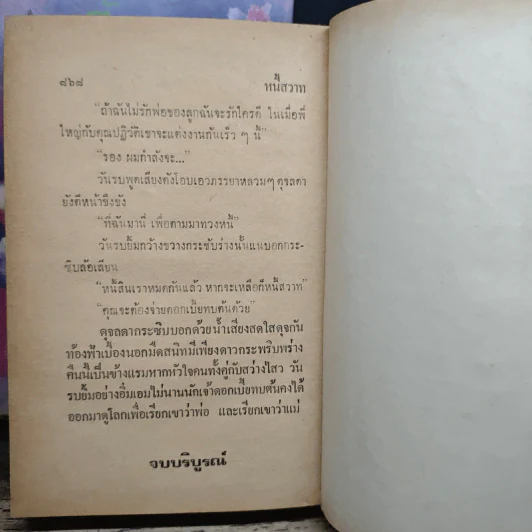 ๘๖๘ หนี้สวาท
"ถ้าฉันไม่รักพ่อของลูกฉันจะรักใครดี ในเมื่อพี่
ใหญ่กับคุณปฏิวัติเขาจะแต่งงานกันเร็ว ๆ นี้"
"รอง ผมกำลังจะ..."
วันรบพูดเสียงดังโอบเอวภรรยาหลวมๆ ดุจลดา
ยังตีหน้าขึงขัง
"ที่ฉันมานี่ เพื่อตามมาทวงหนี้"
วันรบยิ้มกว้างขวางกระชับร่างนั้นแนบอกกระ-
ซิบล้อเลียน
"หนี้สินเราหมดกันแล้ว หากจะเหลือก็หนี้สวาท"
"คุณจะต้องจ่ายดอกเบี้ยทบต้นด้วย"
ดุจลดากระซิบบอกด้วยน้ำเสียงสดใสดุจกัน
ท้องฟ้าเบื้องนอกมืดสนิทมีเพียงดาวกระพริบพร่าง
คืนนี้เป็นข้างแรมหากหัวใจคนทั้งคู่กับสว่างไสว วัน
รบยิ้มอย่างอิ่มเอมไม่นานนักเจ้าดอกเบี้ยทบต้นคงได้
ออกมาดูโลกเพื่อเรียกเขาว่าพ่อ และเรียกเขาว่าแม่
จบบริบูรณ์